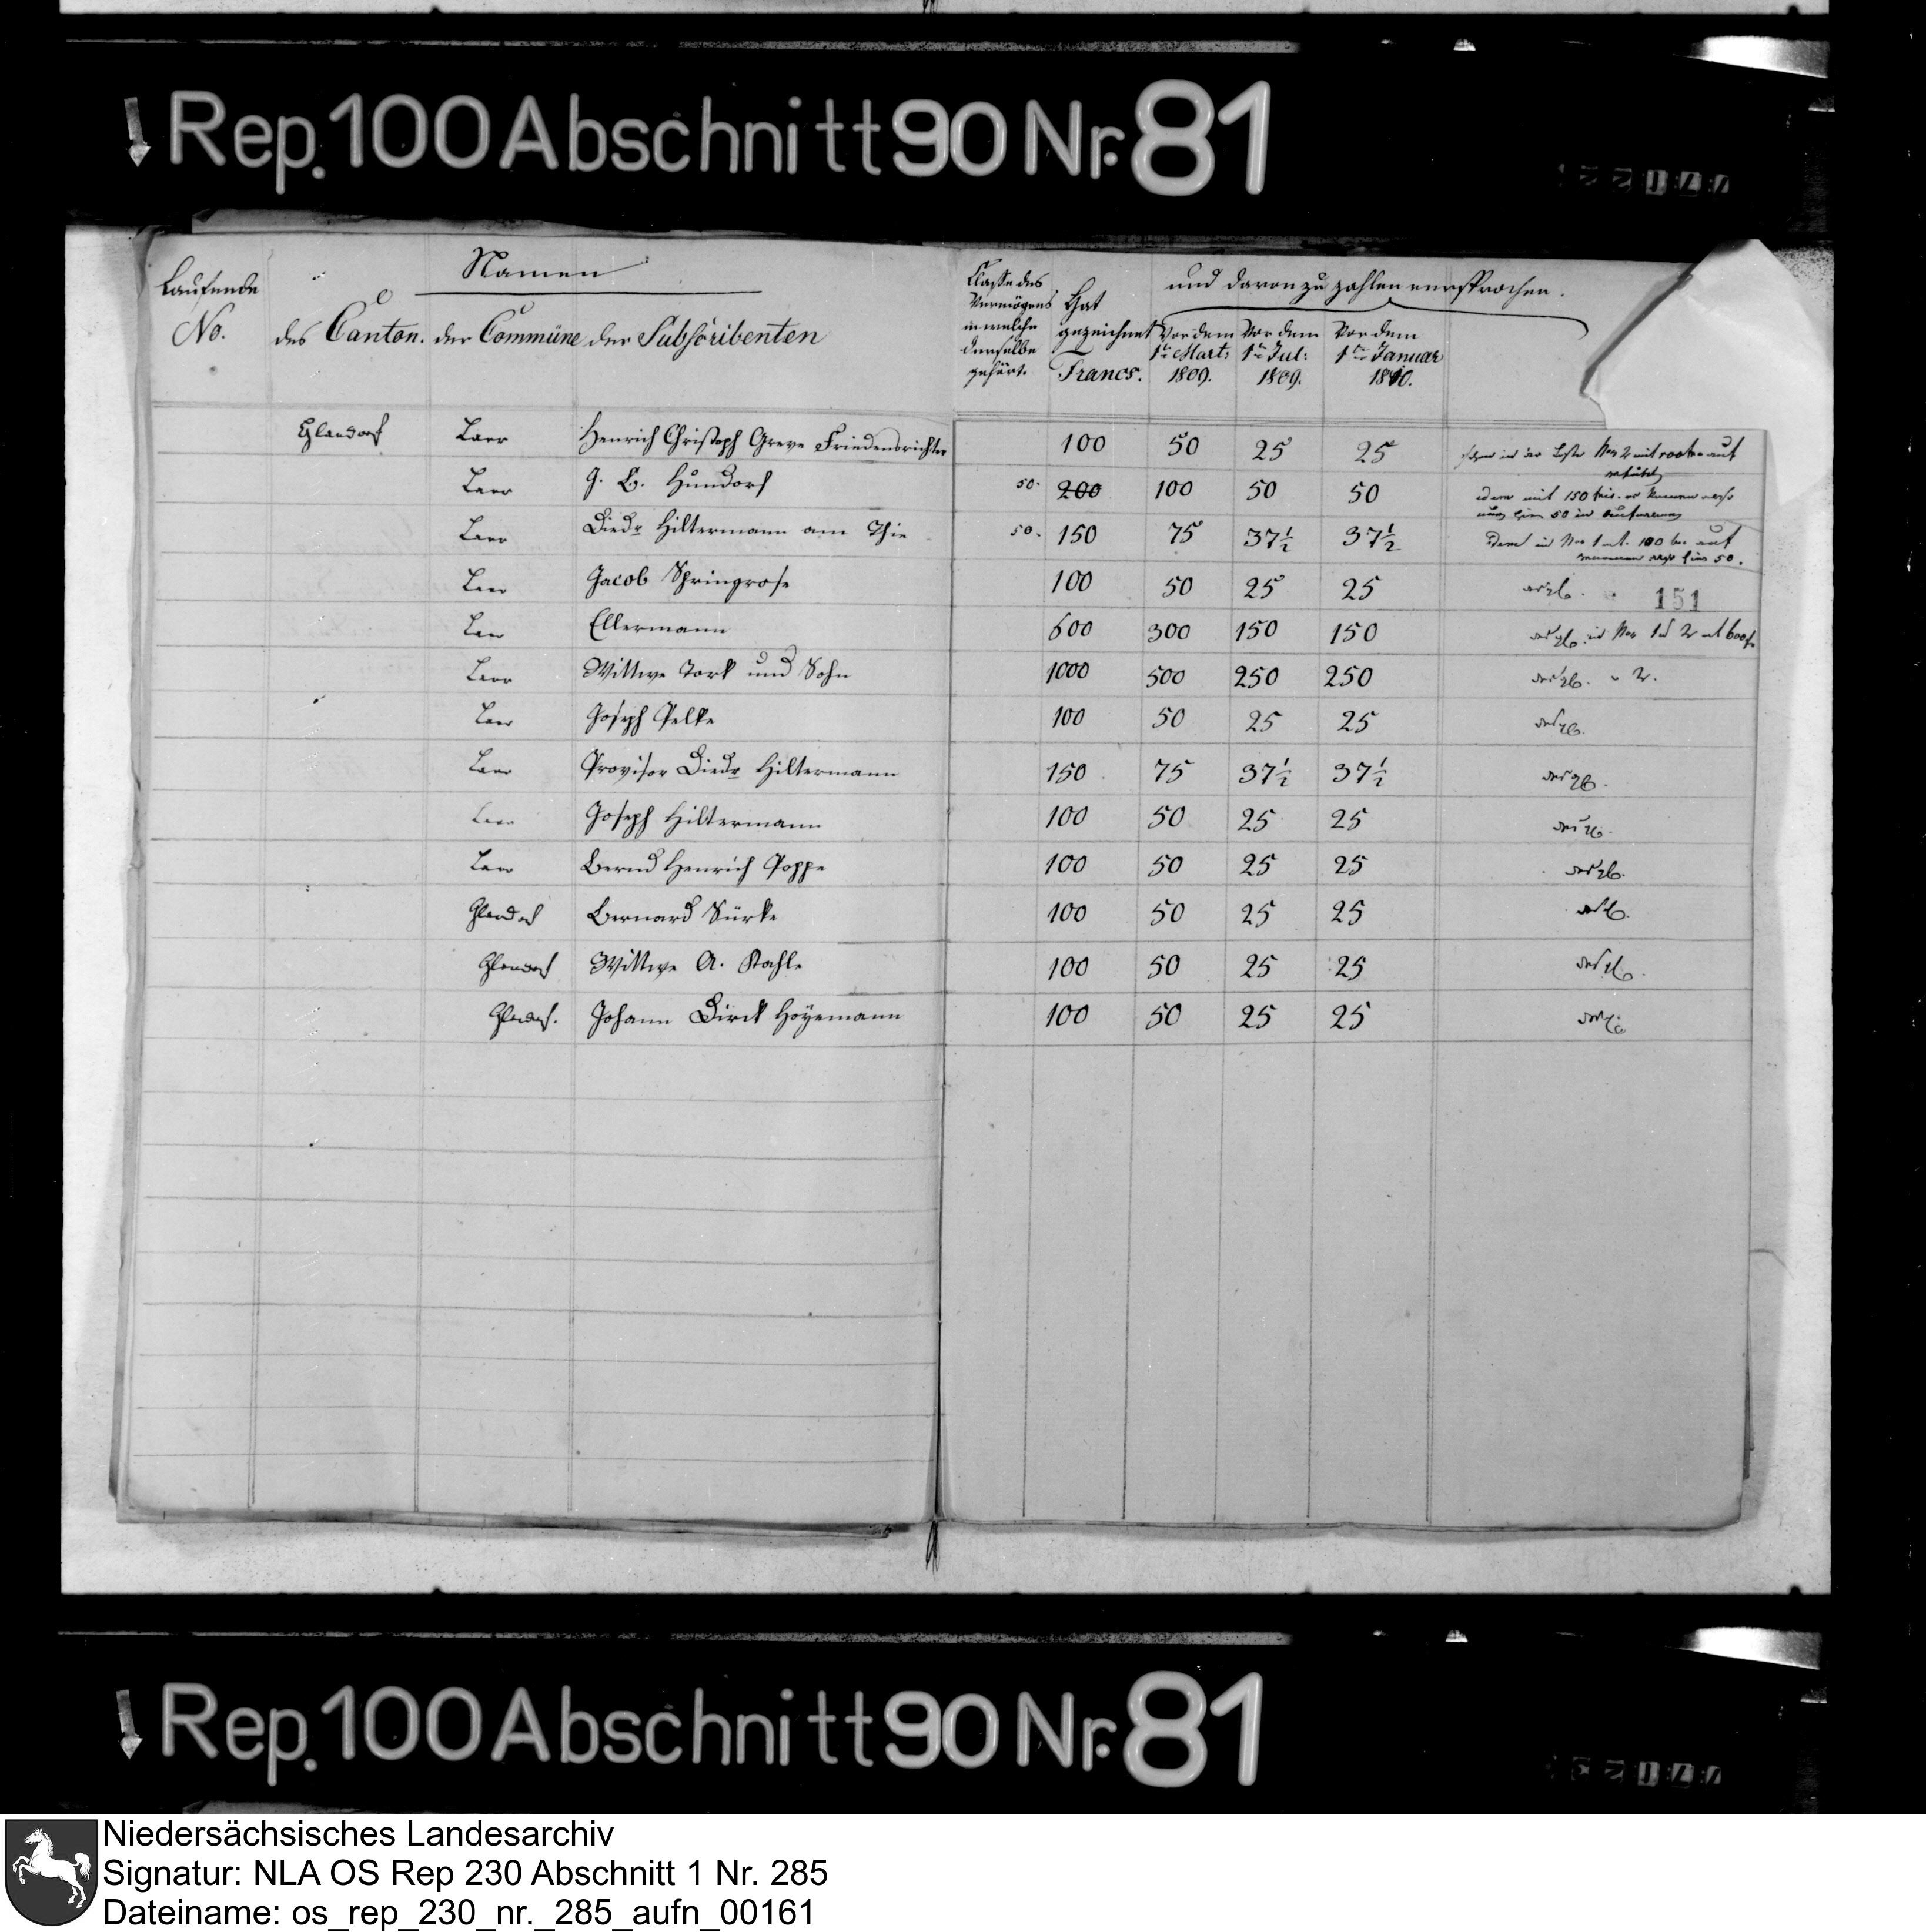 Rep. 100 Abschnitt 90 Nr. 81
Namen
Laufende No. des Canton. der Commüne der Subscribenten
Classe des Vermögens in welche derselbe gehört.
Hat gezeichnet Francs.
und davon zu zahlen versprochen.
Vor dem 1ten Mart: 1809.
Vor dem 1ten Jul: 1809.
Vor dem 1ten Januar 1810.
Glandorf Laer Henrich Christoph Greve Friedensrichter 100 50 25 25
Laer J. B. Hundorf 50. 200 100 50 50
Laer Diedr Hiltermann am Thie 50. 150 75 37½ 37½
Laer Jacob Springrose 100 50 25 25
151
Laer Ellermann 600 300 150 150
Laer Wittwe Tork und Sohn 1000 500 250 250
Laer Joseph Pelke 100 50 25 25
Laer Provisor Diedr Hiltermann 150 75 37½ 37½
Laer Joseph Hiltermann 100 50 25 25
Laer Bernd Henrich Poppe 100 50 25 25
Glandorf Bernard Sürke 100 50 25 25
Glandorf Wittwe A. Kahle 100 50 25 25
Glandorf. Johann Dirck Hoyemann 100 50 25 25
Rep. 100 Abschnitt 90 Nr. 81
Niedersächsisches Landesarchiv
Signatur: NLA OS Rep 230 Abschnitt 1 Nr. 285
Dateiname: os_rep_230_nr._285_aufn_00161